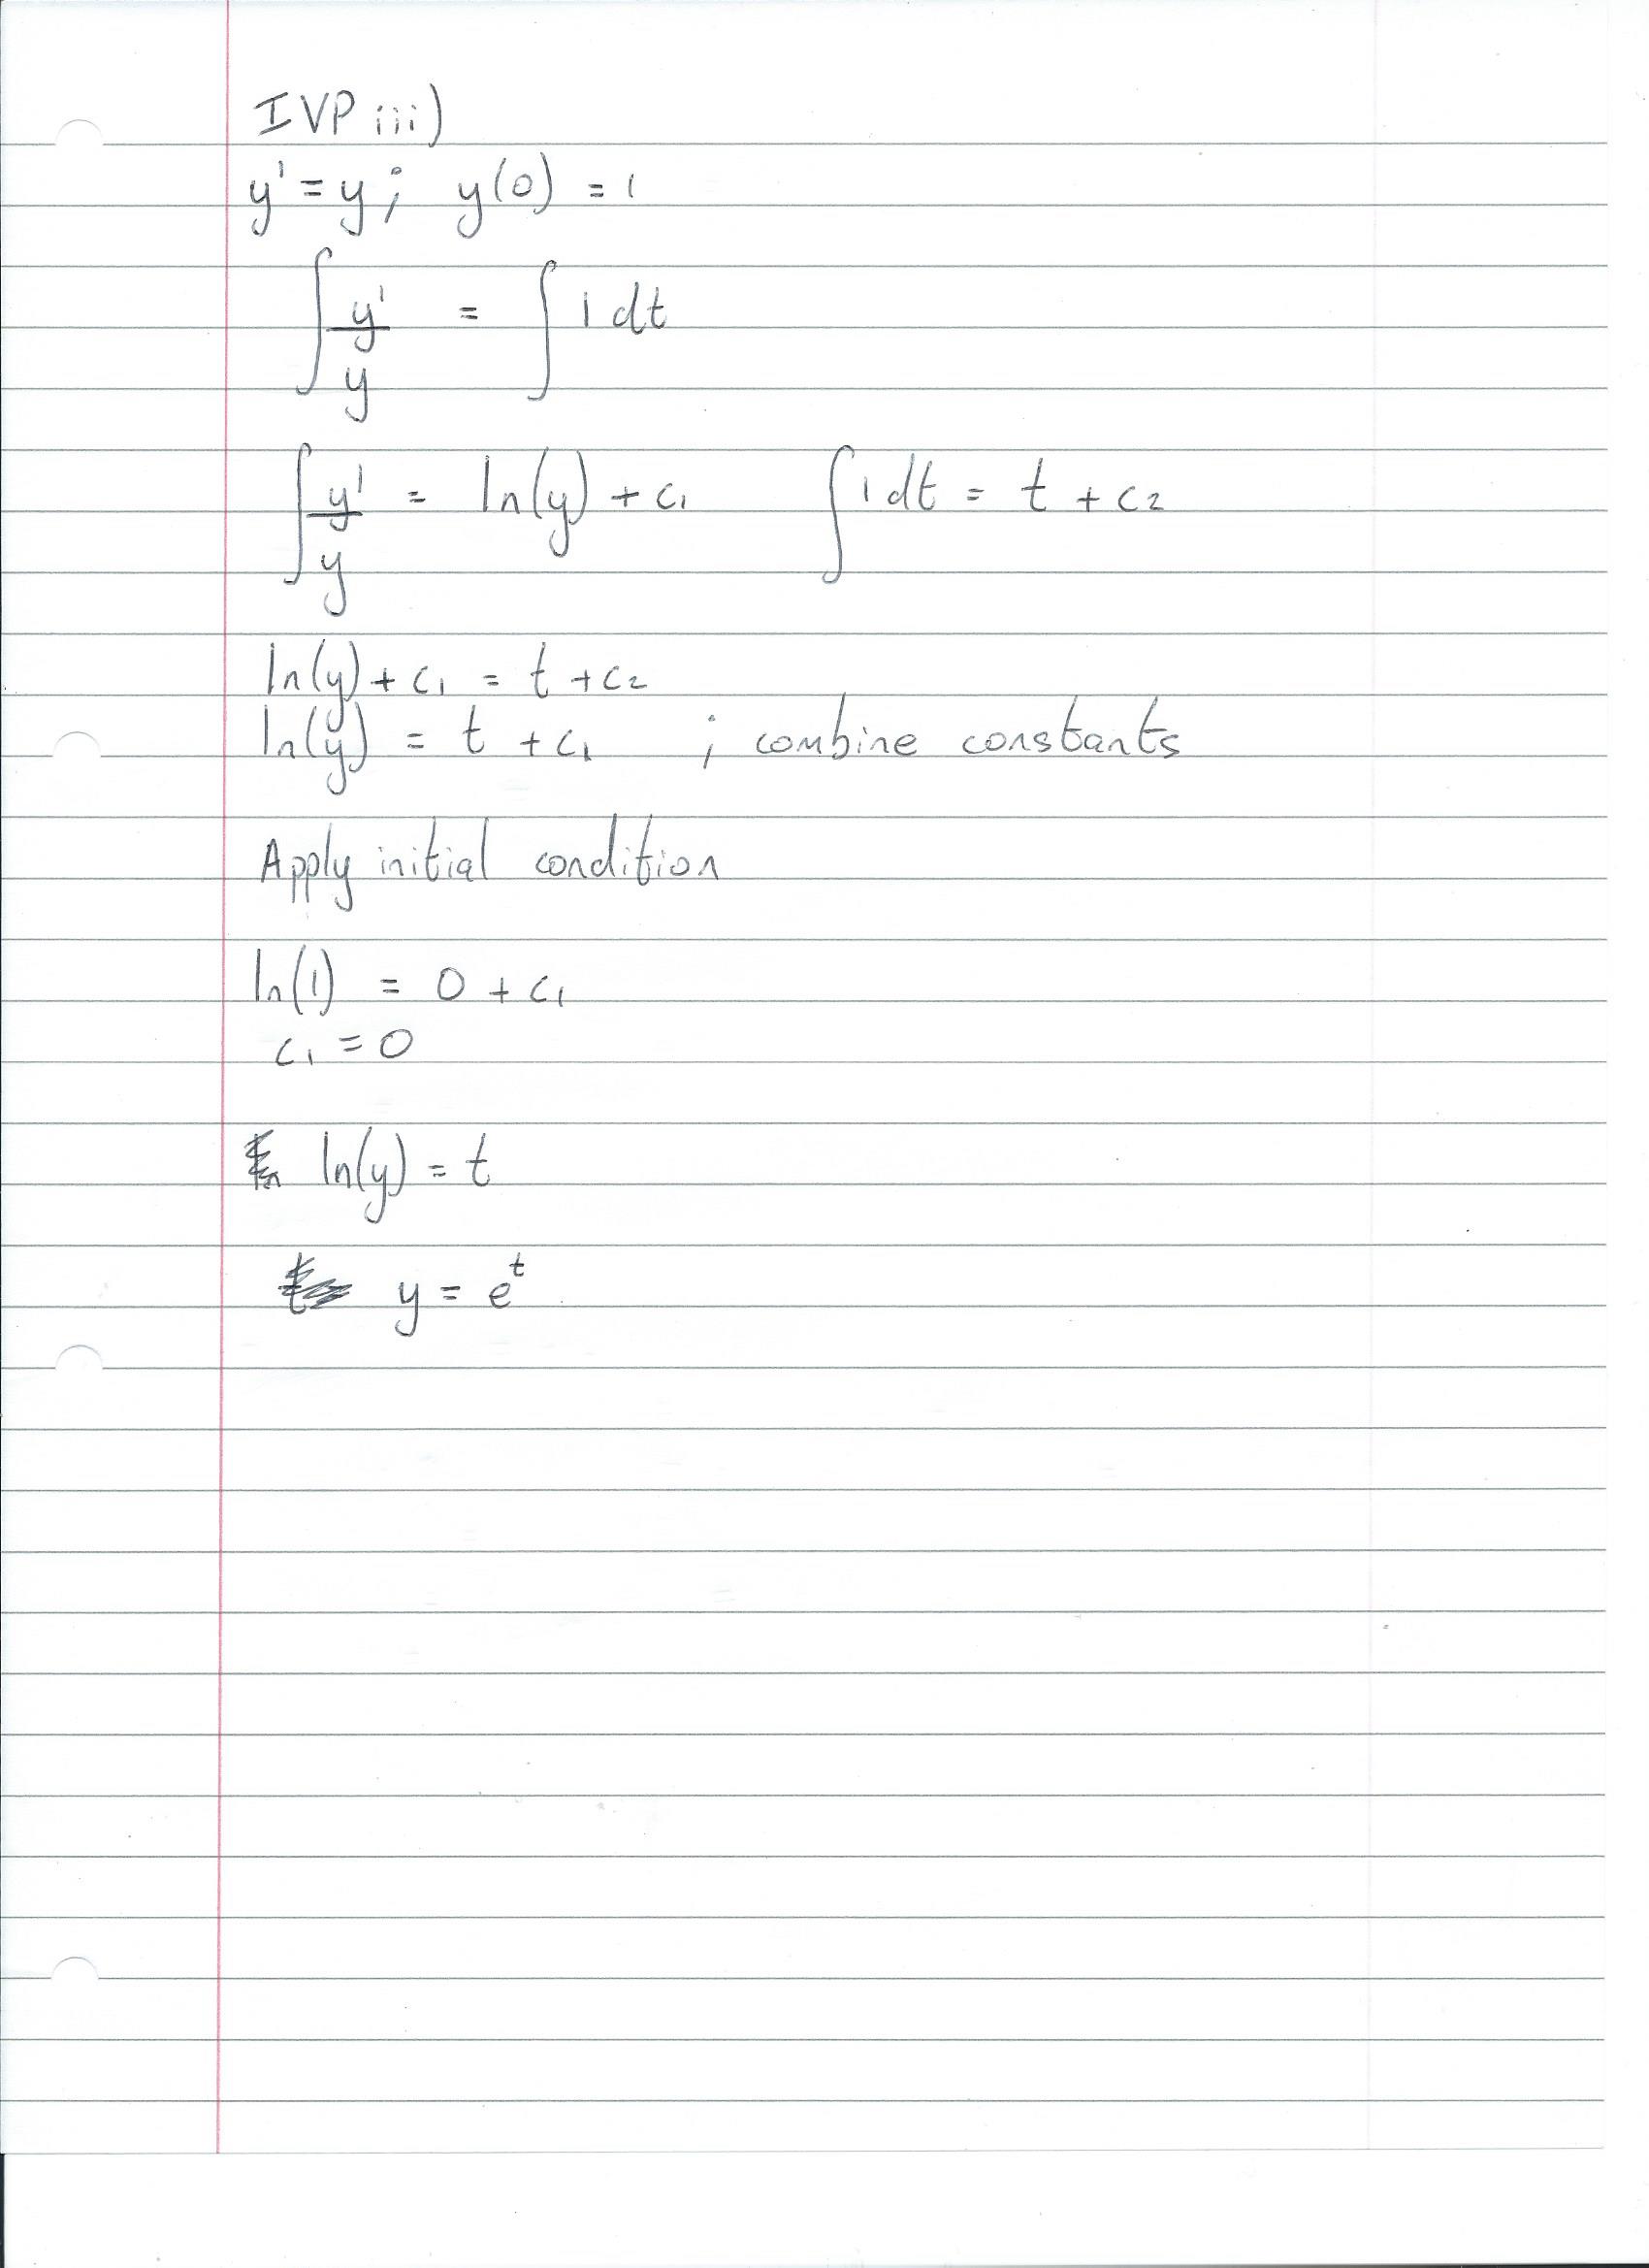 IVP iii)
y' = y; y(0) = 1
∫ y'/y = ∫ 1 dt
∫ y'/y = ln(y) + c₁ ∫ 1 dt = t + c₂
ln(y) + c₁ = t + c₂
ln(y) = t + c₁ ; combine constants
Apply initial condition
ln(1) = 0 + c₁
c₁ = 0
ln(y) = t
y = eᵗ